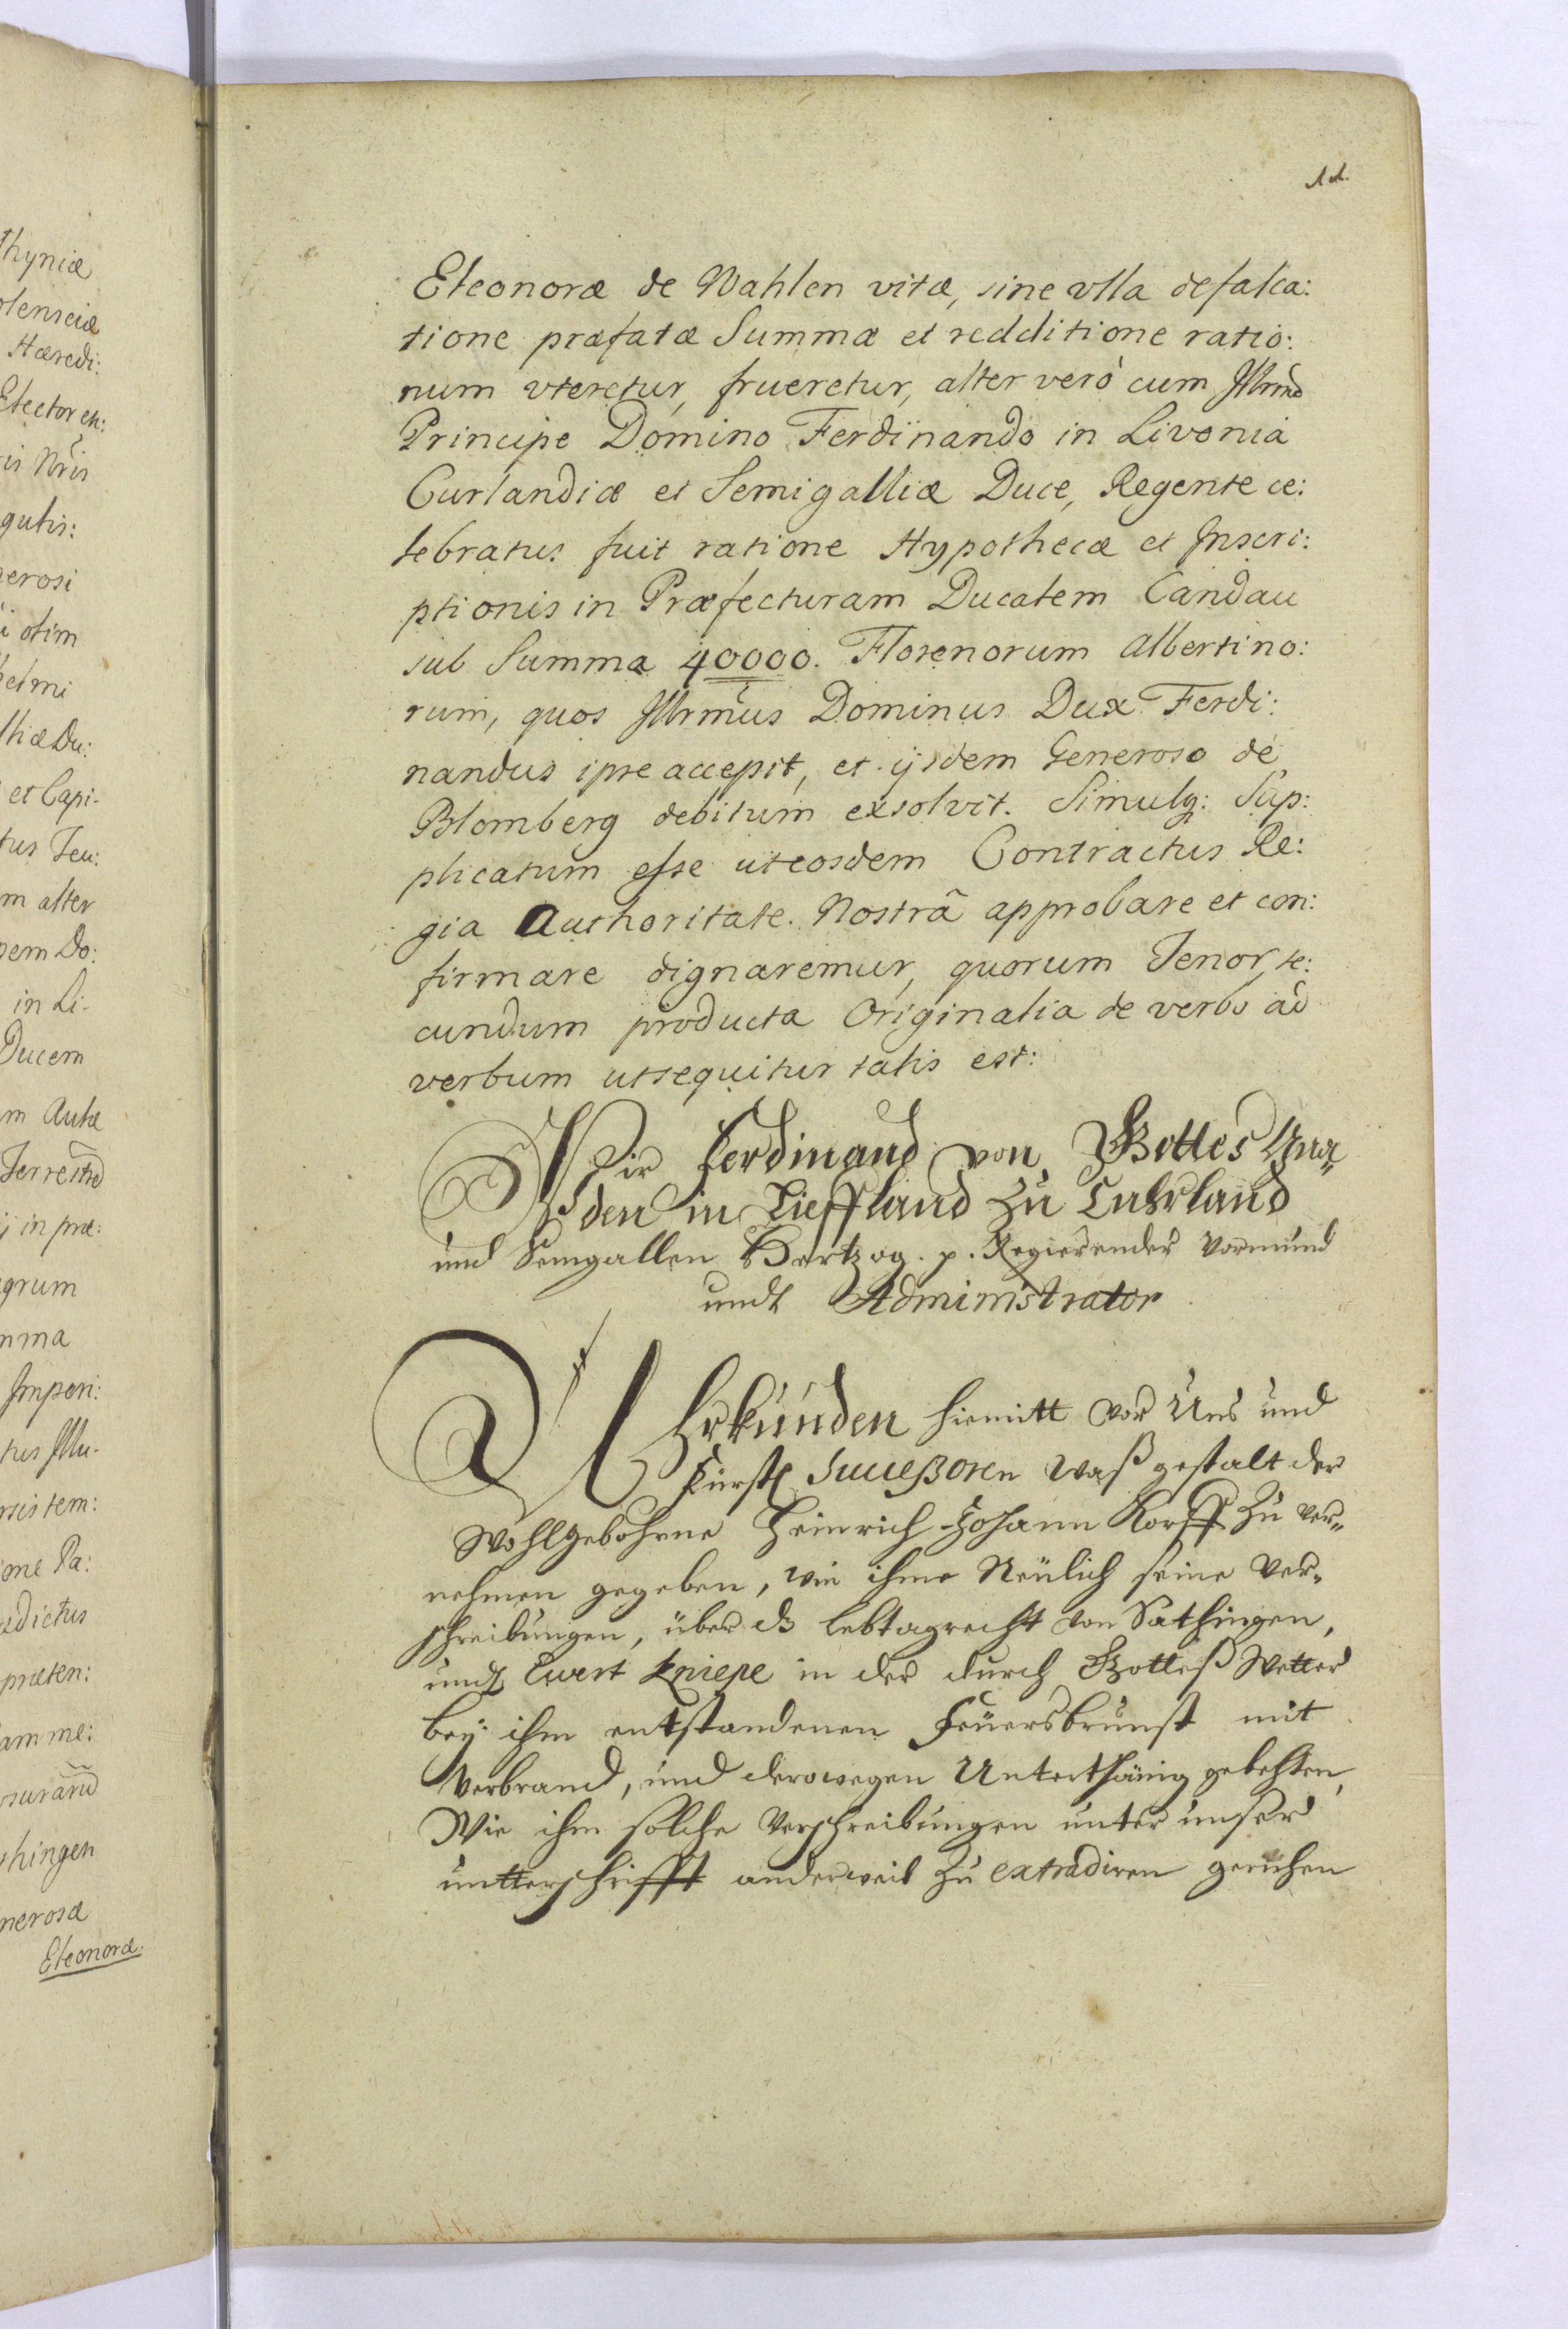 thyniæ
olensciæ
Hæredi:
Elector en:
is Nris
gulis:
erosi
i olim
helmi
lliæ Du:
et Capi-
tus Teu:
m alter
pem Do:
in Li-
Ducem
m Aulæ
Terrestrẽ
ij in præ:
grum
mma
Imperi:
tus Illu-
rsistem:
one Pa:
dictus
præten:
am me:
suram̃
thingen
nerosæ
Eleonoræ.
11.
Eleonoræ de Nahlen vitæ, sine vlla defalca:
tione præfatæ Summæ et redditione ratio:
num vteretur, frueretur, alter verò cum Illrmo
Principe Domino Ferdinando in Livonia
Curlandiæ et Semigalliæ Duce, Regente ce:
lebratus fuit ratione Hypothecæ et Inscri:
ptionis in Præfecturam Ducalem Candau
sub Summa 40000. Florenorum Albertino:
rum, quos Illrmus Dominus Dux Ferdi:
nandus ipse accepit, et ijsdem Generoso de
Blomberg debitum exsolvit. Simulq: Sup:
plicatum esse ut eosdem Contractus Re:
gia Authoritate Nostrã approbare et con:
firmare dignaremur, quorum Tenor, se:
cundum producta Originalia de verbo ad
verbum ut sequitur talis est:
Wir Ferdinand von Gottes Gna„
den in Lieffland Zu Curland
und Semgallen Hertzog. p. Regierender Vormund
undt Administrator
Uhrkunden hiemitt vor Uns und
Fürstl Sucessoren waß gestalt der
Wohlgebohrne Heinrich Johann Korff Zu ver„
nehmen gegeben, wie ihme Neulich seine Ver„
schreibungen, über dß lebtagrecht von Sathingen,
undt Ewert Kniepe in der durch Gotteß Wetter
bey ihm entstandenen Feüersbrunst mit
Verbrand, und derowegen Unterthänig gebehten,
Wie ihm solche Verschreibungen unter unser
untterschrifft anderweil Zu extradiren geruhen